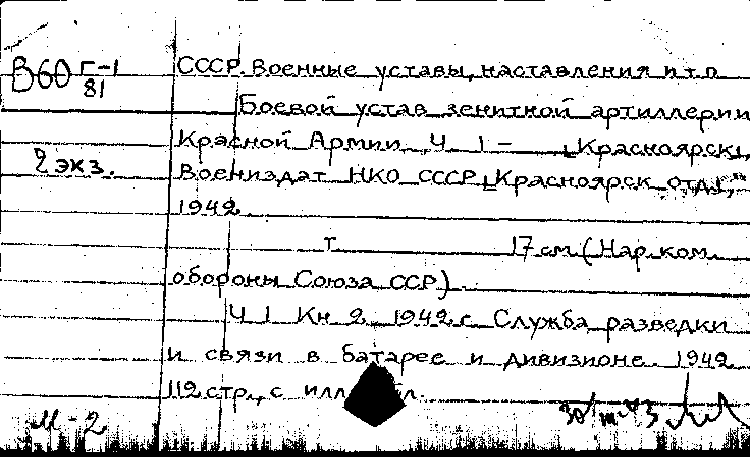 В60 Г-1
81
СССР. Военные уставы, наставления и т.п
Боевой устав зенитной артиллерии
Красной Армии Ч 1 – [Красноярск],
2 экз.
Воениздат НКО СССР, [Красноярск отд.],
1942
т 17 см. (Нар. ком.
обороны Союза ССР).
Ч 1 Кн 2 1942 г. Служба разведки
и связи в батарее и дивизионе. 1942
112 стр., с илл.
И-2